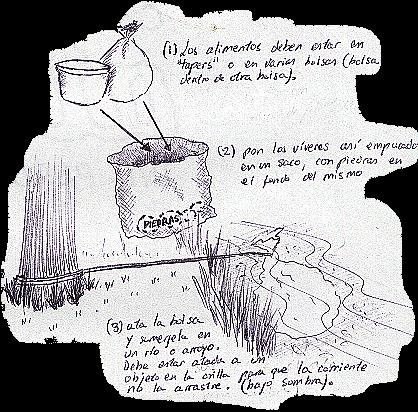 (1) Los alimentos deben estar en
"tapers" o en varias bolsas (bolsa
dentro de otra bolsa).
(2) pon los víveres así empacado
en un saco, con piedras en
el fondo del mismo
PIEDRAS
(3) ata la bolsa
y sumerjela en
un río o arroyo.
Debe estar atada a un
objeto en la orilla para que la corriente
no la arrastre. (bajo sombra).